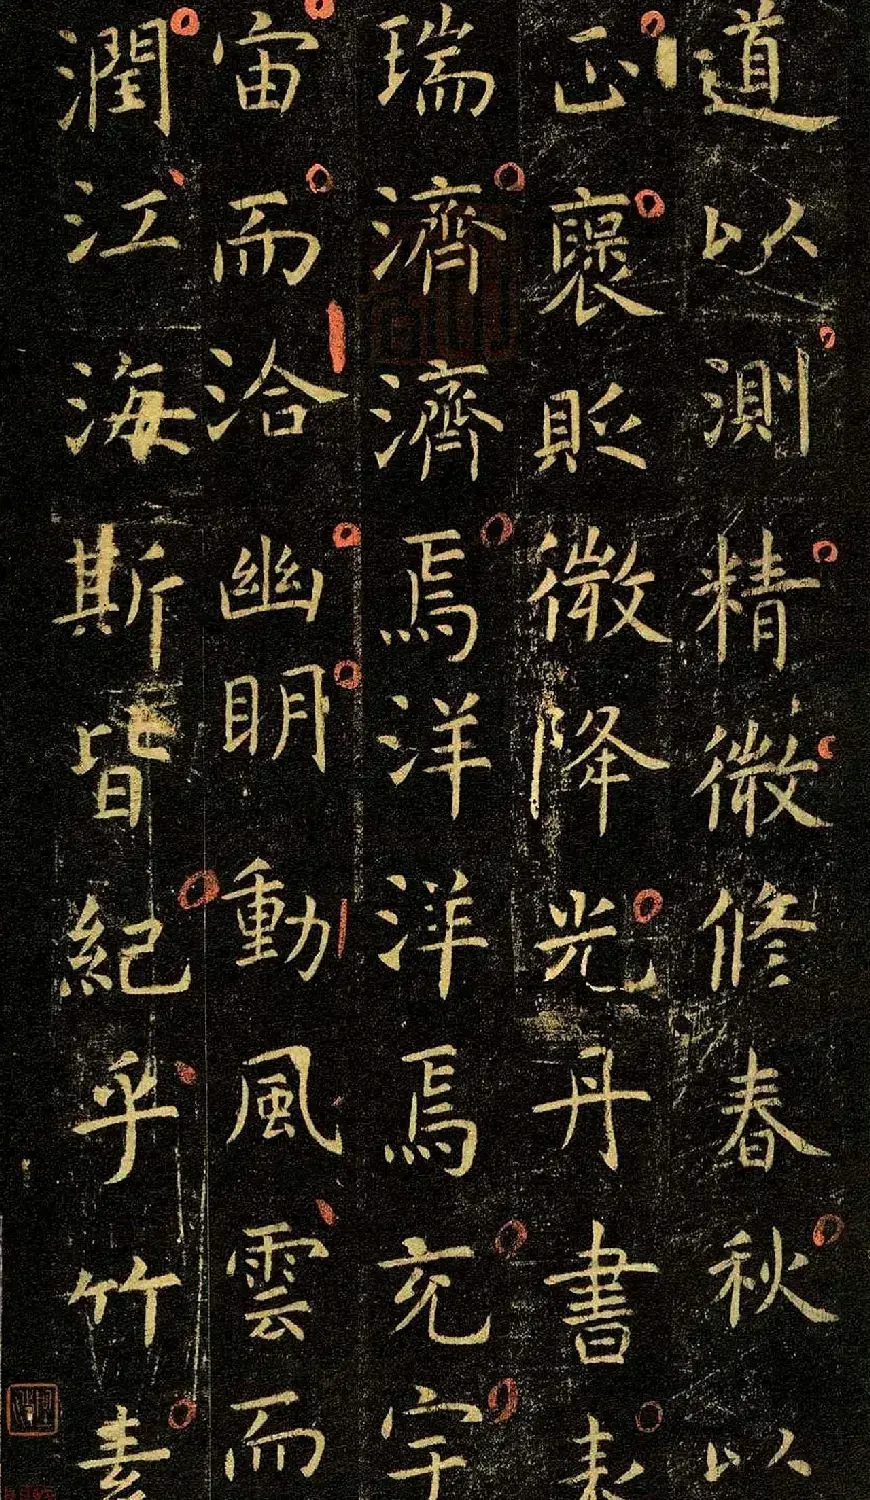 道以測精微修春秋以
正襃貶微降光丹書表
瑞濟濟焉洋洋焉充宇
宙而洽幽明動風雲而
潤江海斯皆紀乎竹素